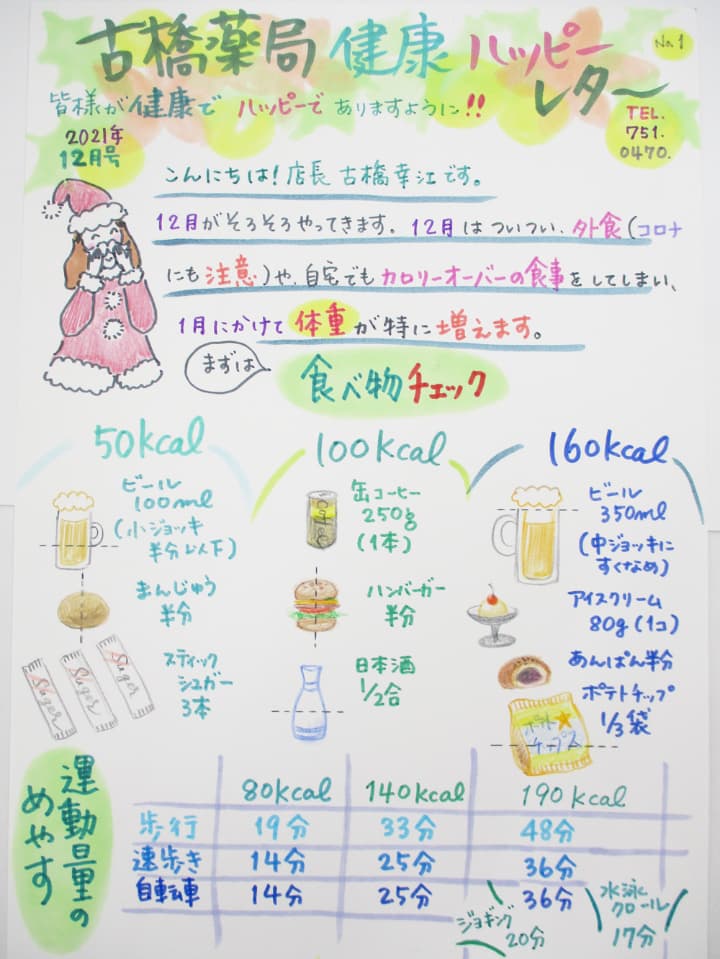 古橋薬局 健康 ハッピー
レター
No.1
皆様が健康で ハッピーで ありますように!!
TEL.
751.
0470.
2021年
12月号
こんにちは! 店長 古橋幸江です。
12月がそろそろやってきます。12月はついつい、外食(コロナ
にも注意)や、自宅でもカロリーオーバーの食事をしてしまい、
1月にかけて体重が特に増えます。
まずは
食べ物チェック
50kcal
ビール
100ml
(小ジョッキ
半分以下)
まんじゅう
半分
スティック
シュガー
3本
Suger
Suger
Suger
100kcal
缶コーヒー
250g
(1本)
Coffee
ハンバーガー
半分
日本酒
1/2合
160kcal
ビール
350ml
(中ジョッキに
すくなめ)
アイスクリーム
80g(1コ)
あんぱん半分
ポテトチップ
1/3袋
ポテト
チップス
運動量の
めやす
80kcal 140kcal 190kcal
歩行 19分 33分 48分
速歩き 14分 25分 36分
自転車 14分 25分 36分
ジョギング
20分
水泳
クロール
17分